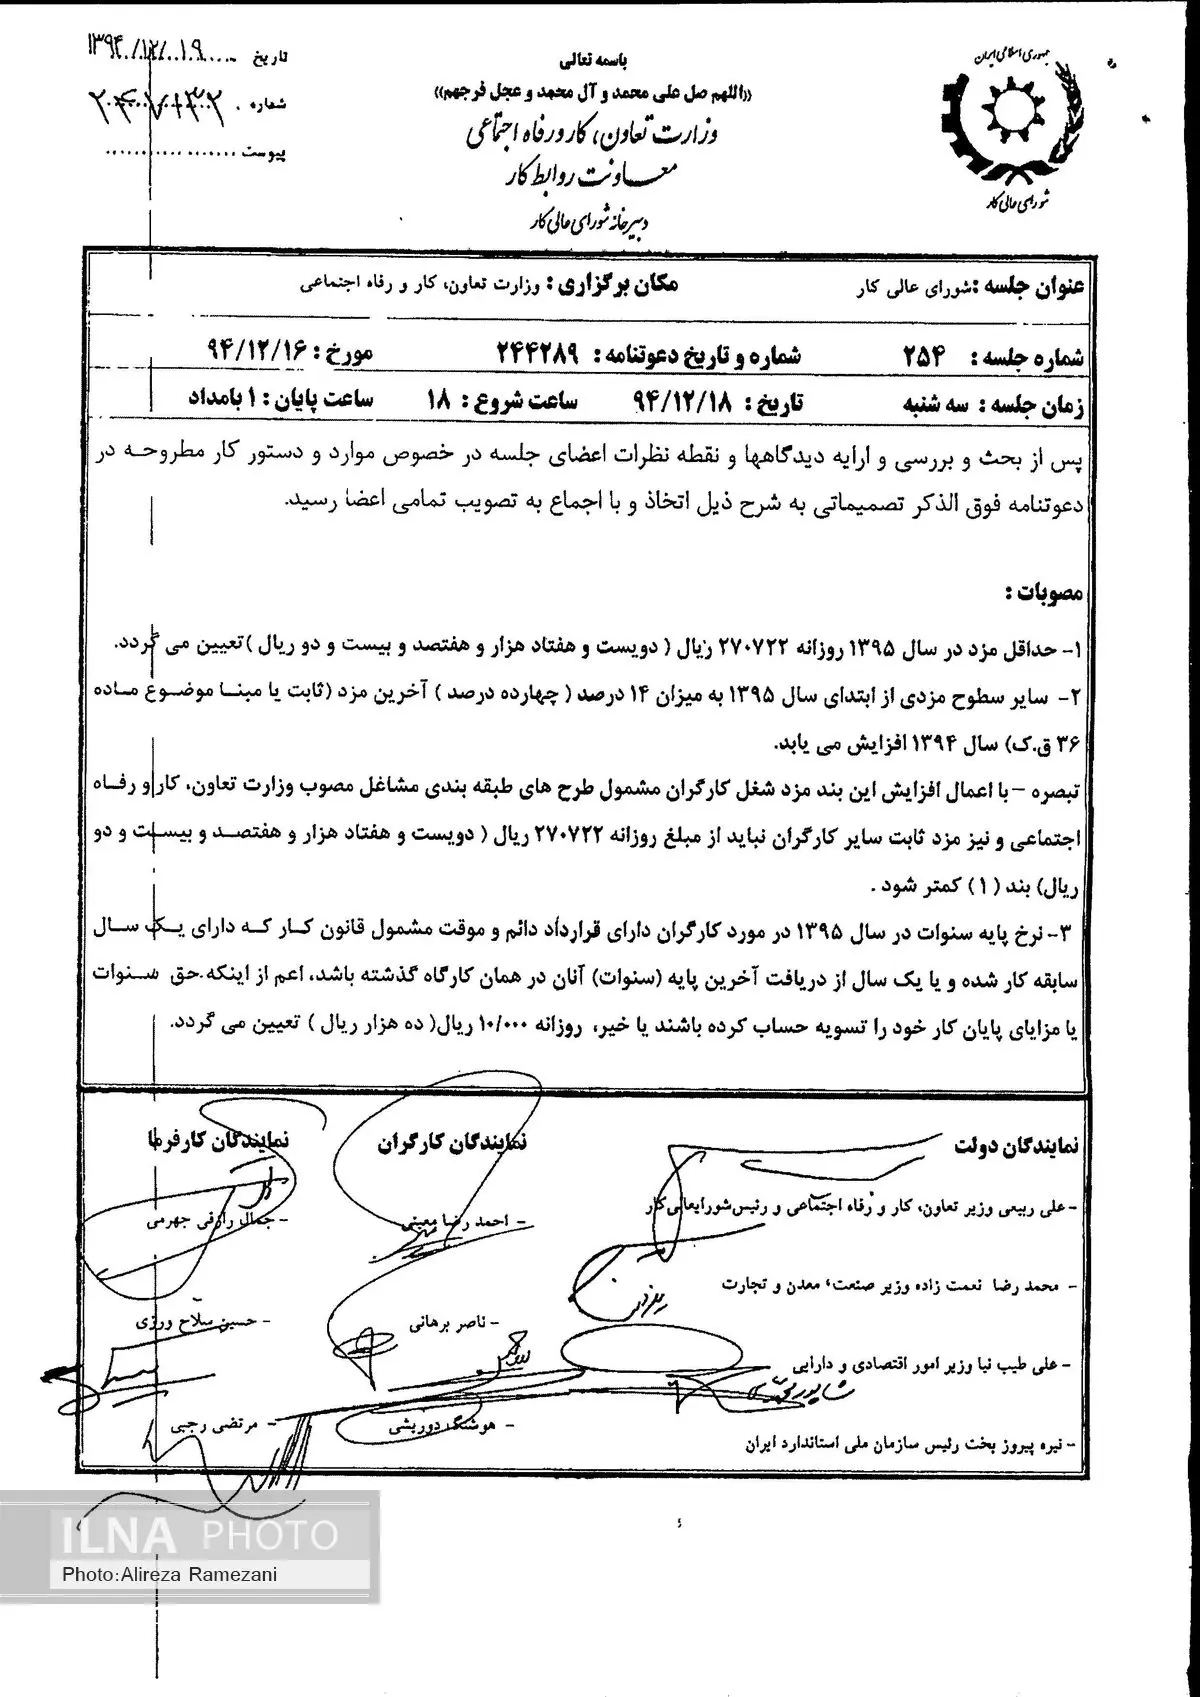 جمهوری اسلامی ایران
شورای عالی کار
باسمه تعالی
«اللهم صل علی محمد و آل محمد و عجل فرجهم»
وزارت تعاون، کار و رفاه اجتماعی
معاونت روابط کار
دبیرخانه شورای عالی کار
تاریخ ۱۳۹۴/۱۲/۱۹
شماره
پیوست
عنوان جلسه : شورای عالی کار مکان برگزاری : وزارت تعاون، کار و رفاه اجتماعی
شماره جلسه : ۲۵۴ شماره و تاریخ دعوتنامه : ۲۴۴۲۸۹ مورخ : ۹۴/۱۲/۱۶
زمان جلسه : سه شنبه تاریخ : ۹۴/۱۲/۱۸ ساعت شروع : ۱۸ ساعت پایان : ۱ بامداد
پس از بحث و بررسی و ارایه دیدگاهها و نقطه نظرات اعضای جلسه در خصوص موارد و دستور کار مطروحه در
دعوتنامه فوق الذکر تصمیماتی به شرح ذیل اتخاذ و با اجماع به تصویب تمامی اعضا رسید.
مصوبات :
۱- حداقل مزد در سال ۱۳۹۵ روزانه ۲۷۰۷۲۲ ریال ( دویست و هفتاد هزار و هفتصد و بیست و دو ریال )تعیین می گردد.
۲- سایر سطوح مزدی از ابتدای سال ۱۳۹۵ به میزان ۱۴ درصد ( چهارده درصد ) آخرین مزد (ثابت یا مبنا موضوع ماده
۳۶ ق.ک) سال ۱۳۹۴ افزایش می یابد.
تبصره – با اعمال افزایش این بند مزد شغل کارگران مشمول طرح های طبقه بندی مشاغل مصوب وزارت تعاون، کار و رفاه
اجتماعی و نیز مزد ثابت سایر کارگران نباید از مبلغ روزانه ۲۷۰۷۲۲ ریال ( دویست و هفتاد هزار و هفتصد و بیست و دو
ریال) بند ( ۱ ) کمتر شود .
۳- نرخ پایه سنوات در سال ۱۳۹۵ در مورد کارگران دارای قرارداد دائم و موقت مشمول قانون کار که دارای یک سال
سابقه کار شده و یا یک سال از دریافت آخرین پایه (سنوات) آنان در همان کارگاه گذشته باشد، اعم از اینکه حق سنوات
یا مزایای پایان کار خود را تسویه حساب کرده باشند یا خیر، روزانه ۱۰/۰۰۰ ریال( ده هزار ریال ) تعیین می گردد.
نمایندگان دولت نمایندگان کارگران نمایندگان کارفرما
- علی ربیعی وزیر تعاون، کار و رفاه اجتماعی و رئیس شورایعالی کار - احمد رضا معینی - جمال رازقی جهرمی
- محمد رضا نعمت زاده وزیر صنعت، معدن و تجارت - ناصر برهانی - حسین سلاح ورزی
- علی طیب نیا وزیر امور اقتصادی و دارایی - هوشنگ دوربشی - مرتضی رجبی
- نیره پیروز بخت رئیس سازمان ملی استاندارد ایران
ILNA PHOTO
Photo:Alireza Ramezani